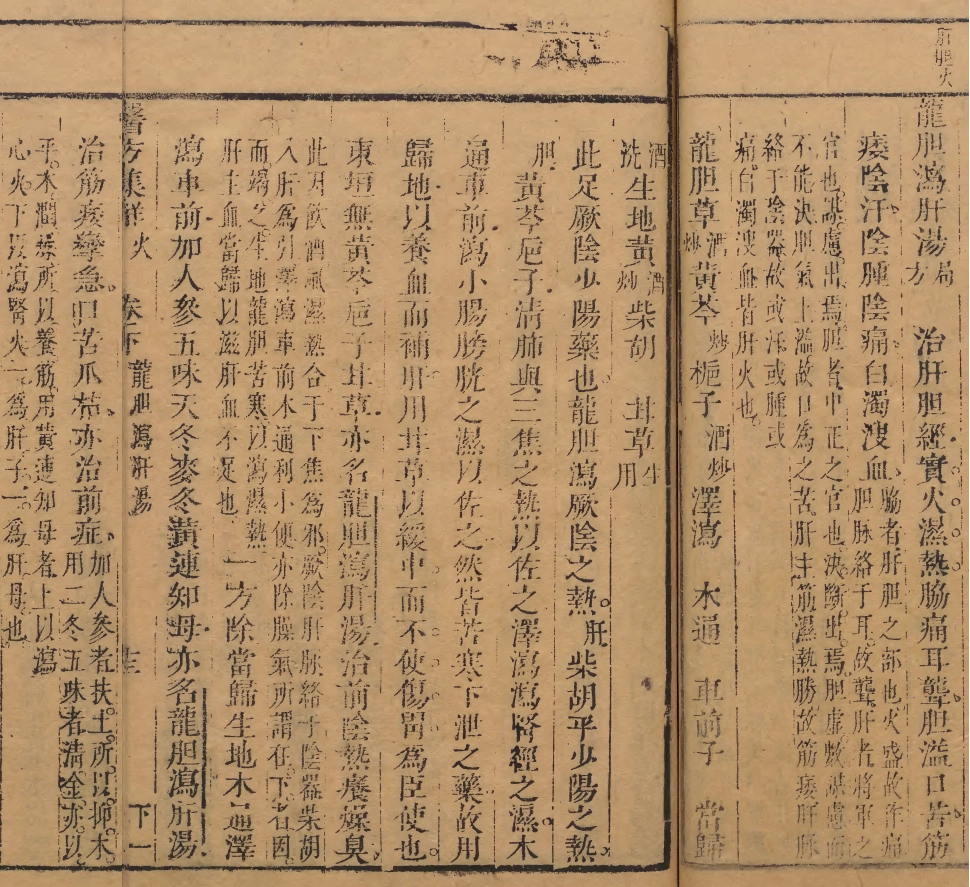 肝胆火
龍胆瀉肝湯局方 治肝胆經實火濕熱脇痛耳聾胆溢口苦筋
脇者肝胆之部也火盛故作痛
痿陰汗陰腫陰痛白濁溲血胆脉絡于耳故聾肝者將軍之
官也謀慮出焉胆者中正之官也決斷出焉胆虛數謀慮而
不能決胆氣上溢故口為之苦肝主筋濕熱勝故筋痿肝脉
絡于陰器故或汗或腫或
痛白濁溲血皆肝火也
龍胆草酒炒黃芩炒梔子酒炒澤瀉 木通 車前子 當歸
酒洗生地黃酒炒柴胡 甘草生用
此足厥陰少陽藥也龍胆瀉厥陰之熱肝柴胡平少陽之熱
胆黃芩梔子清肺與三焦之熱以佐之澤瀉瀉腎經之濕木
通車前瀉小腸膀胱之濕以佐之然皆苦寒下泄之藥故用
歸地以養血而補肝用甘草以緩中而不使傷胃為臣使也
東垣無黃芩梔子甘草亦名龍胆瀉肝湯治前陰熱癢燥臭
此因飲酒風濕熱合于下焦為邪厥陰肝脉絡于陰器柴胡
入肝為引澤瀉車前木通利小便亦除臊氣所謂在下者因
而竭之生地龍胆苦寒以瀉濕熱
肝主血當歸以滋肝血不足也 一方除當歸生地木通澤
瀉車前加人參五味天冬麥冬黃連知母亦名龍胆瀉肝湯
醫方集解 火 卷下 龍胆瀉肝湯 下一
治筋痿攣急口苦爪枯亦治前症加人參者扶土所以抑木
用二冬五味者清金亦以
平木潤燥所以養筋用黃連知母者上以瀉
心火下以瀉腎火一為肝子一為肝母也